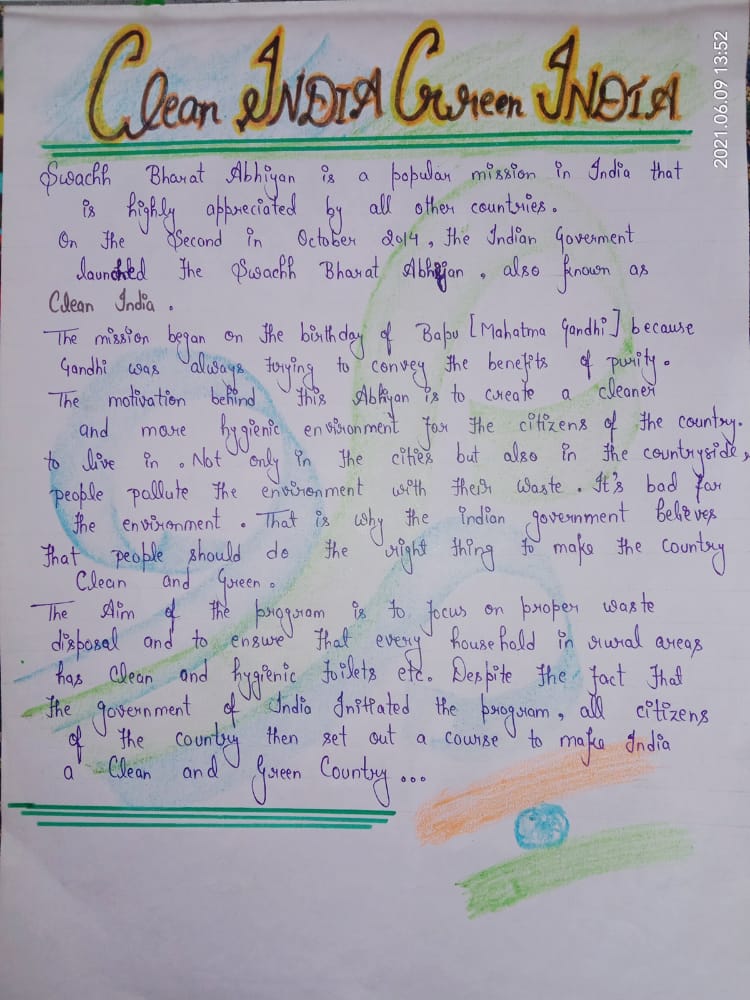 Clean INDIA Green INDIA
2021.06.09 13:52
Swachh Bharat Abhiyan is a popular mission in India that
is highly appreciated by all other countries.
On The Second in October 2014, The Indian Goverment
launched The Swachh Bharat Abhiyan, also known as
Clean India.
The mission began on The birthday of Bapu [Mahatma Gandhi] because
Gandhi was always trying to convey The benefits of purity.
The motivation behind This Abhiyan is to create a cleaner
and more hygienic environment for The citizens of The country.
to live in. Not only in The cities but also in The countryside,
people pollute The environment with Their waste. It's bad for
The environment. That is why The indian government believes
That people should do The right thing to make The country
Clean and Green.
The Aim of The program is to focus on proper waste
disposal and to ensure That every household in rural areas
has Clean and hygienic toilets etc. Despite The fact That
The government of India Initiated the program, all citizens
of The country then set out a course to make India
a Clean and Green Country...